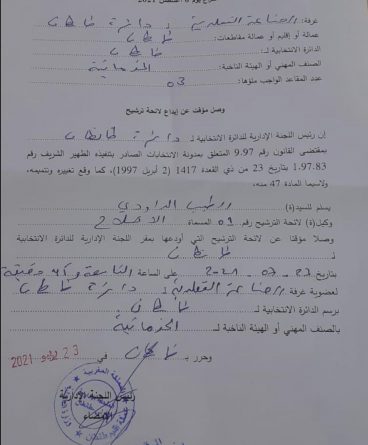 غرفة: الصناعة التقليدية لـ دائرة طانطان
عمالة أو إقليم أو عمالة مقاطعات:
طانطان
الدائرة الانتخابية لـ: طانطان
الصنف المهني أو الهيئة الناخبة: الخدماتية
عدد المقاعد الواجب ملؤها: 03
وصل مؤقت عن إيداع لائحة ترشيح
إن رئيس اللجنة الإدارية للدائرة الانتخابية لـ دائرة طانطان
بمقتضى القانون رقم 9.97 المتعلق بمدونة الانتخابات الصادر بتنفيذه الظهير الشريف رقم
1.97.83 بتاريخ 23 من ذي القعدة 1417 (2 أبريل 1997)، كما وقع تغييره وتتميمه،
ولاسيما المادة 47 منه.
يسلم للسيد(ة)
وكيل(ة) لائحة الترشيح رقم 01 المسماة
وصلا مؤقتا عن لائحة الترشيح التي أودعها بمقر اللجنة الإدارية للدائرة الانتخابية
لـ طانطان
بتاريخ 23-07-2021 على الساعة التاسعة و دقيقة
لعضوية غرفة الصناعة التقليدية لـ دائرة طانطان
برسم الدائرة الانتخابية لـ طانطان
بالصنف المهني أو الهيئة الناخبة لـ الخدماتية
وحرر بـ طانطان في 23 يوليو 2021
رئيس اللجنة الإدارية
الإمضاء